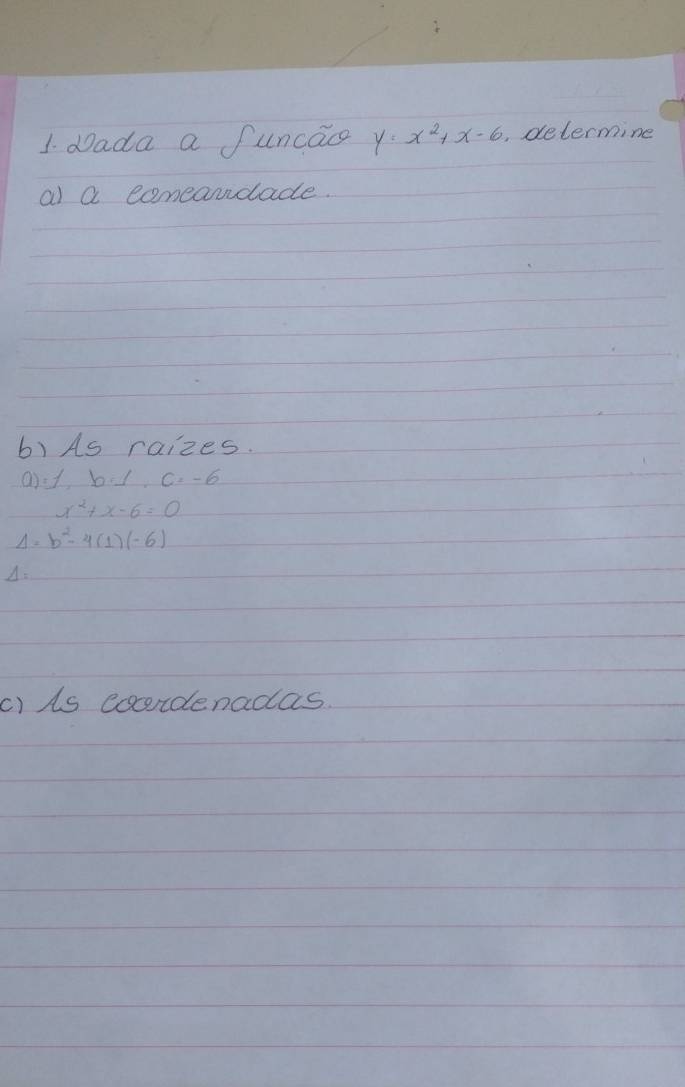 1. Dada a função y = x² + x - 6, determine
a) a concavidade.
b) As raízes.
a) = 1, b = 1, c = -6
x² + x - 6 = 0
Δ = b² - 4(1)(-6)
Δ =
c) As coordenadas.